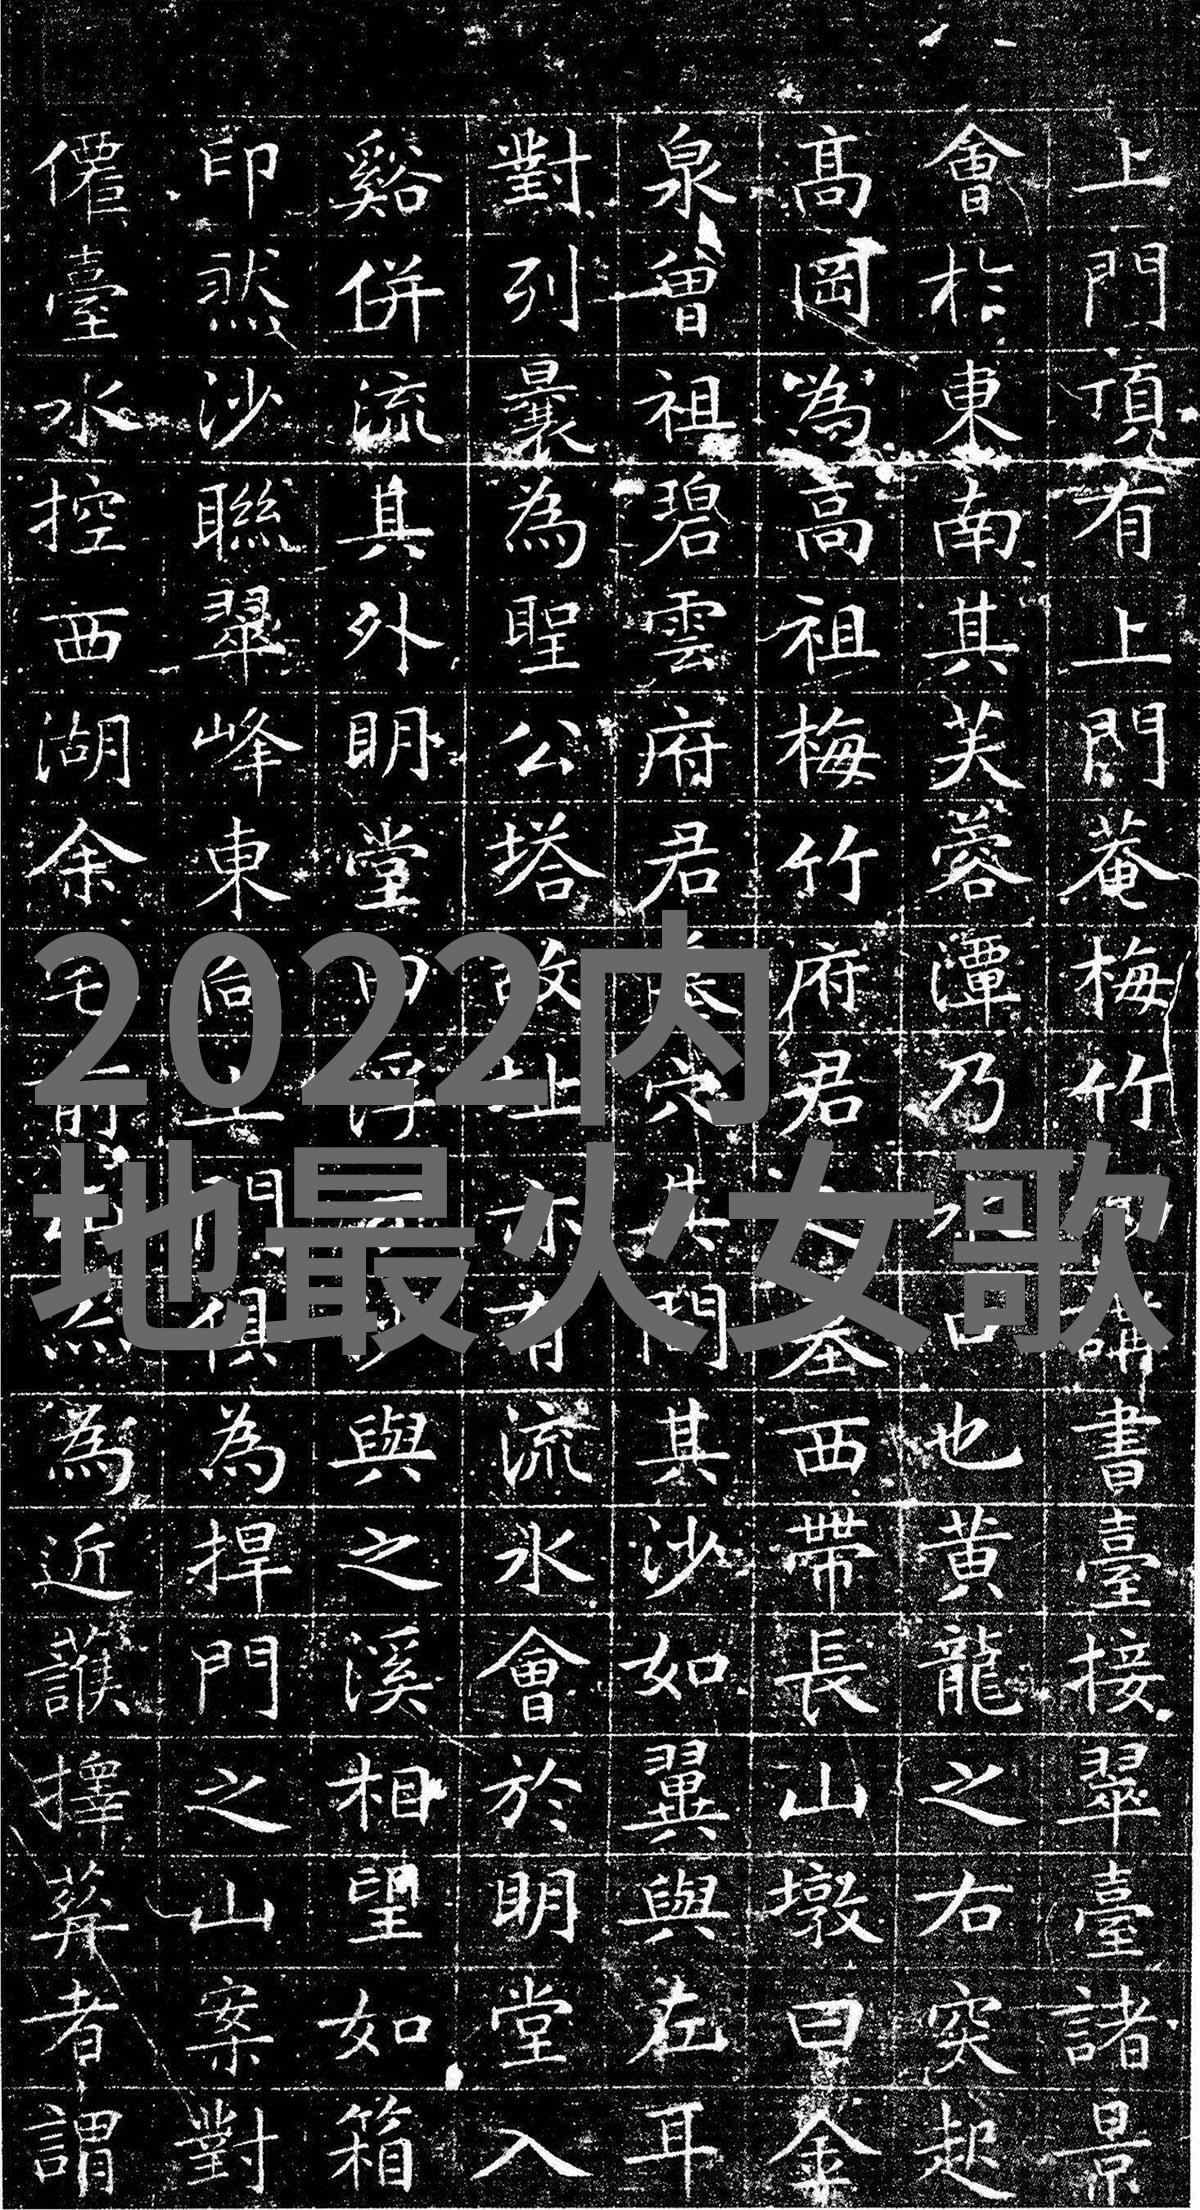 上門頂有上門菴梅竹講書臺接翠臺諸景
會於東南其芙蓉潭乃水口也黃龍之右突起
高岡為高祖梅竹府君之墓西帶長山墩曰金
泉曾祖碧雲府君穴其門其沙如翼與左耳
對列曩為聖公塔故址亦有流水會於明堂入
谿併流其外明堂浮沙與之溪相望如箱
印然沙聯翠峰東向上門俱為捍門之山案對
僊臺水控西湖余宅前為近擇葬者謂
2022内
地最火女歌